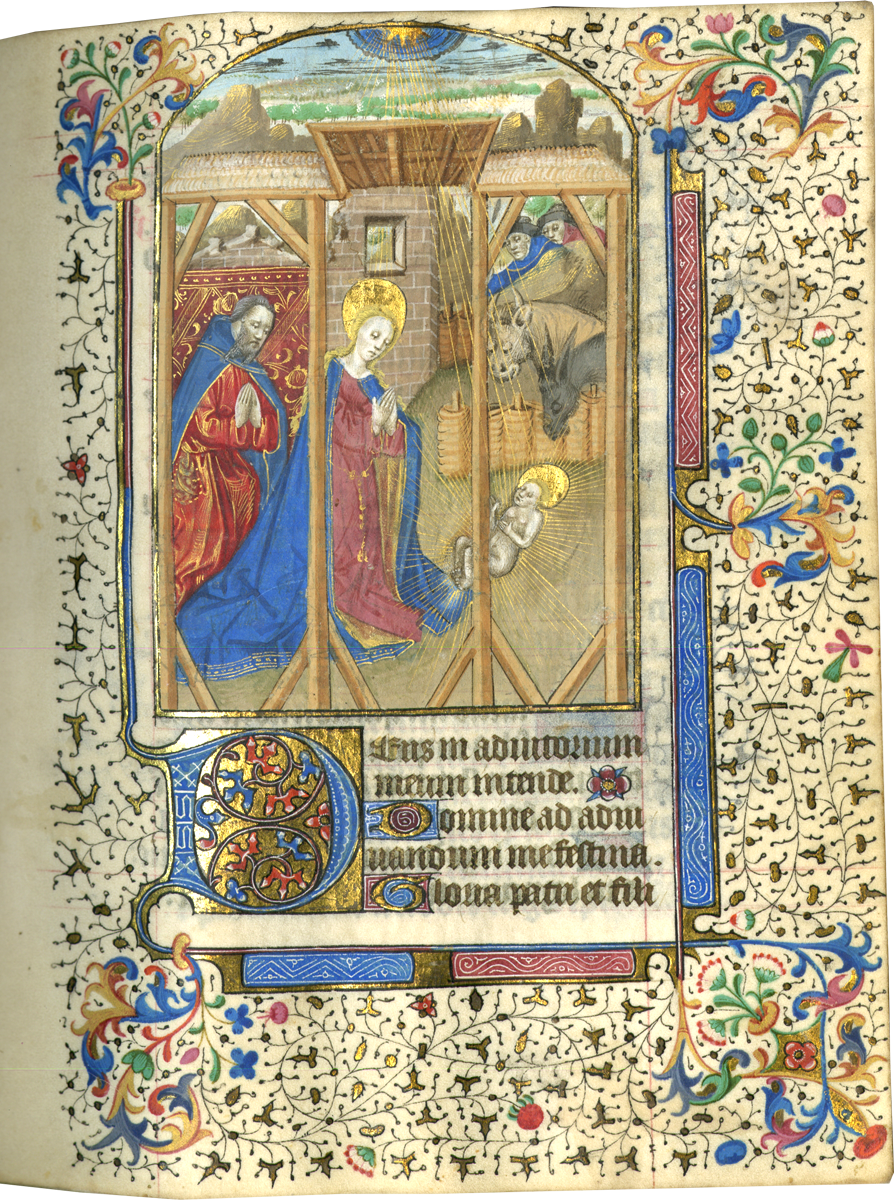 Deus in adiutorium
meum intende.
Domine ad adiu
uandum me festina.
Gloria patri et fili